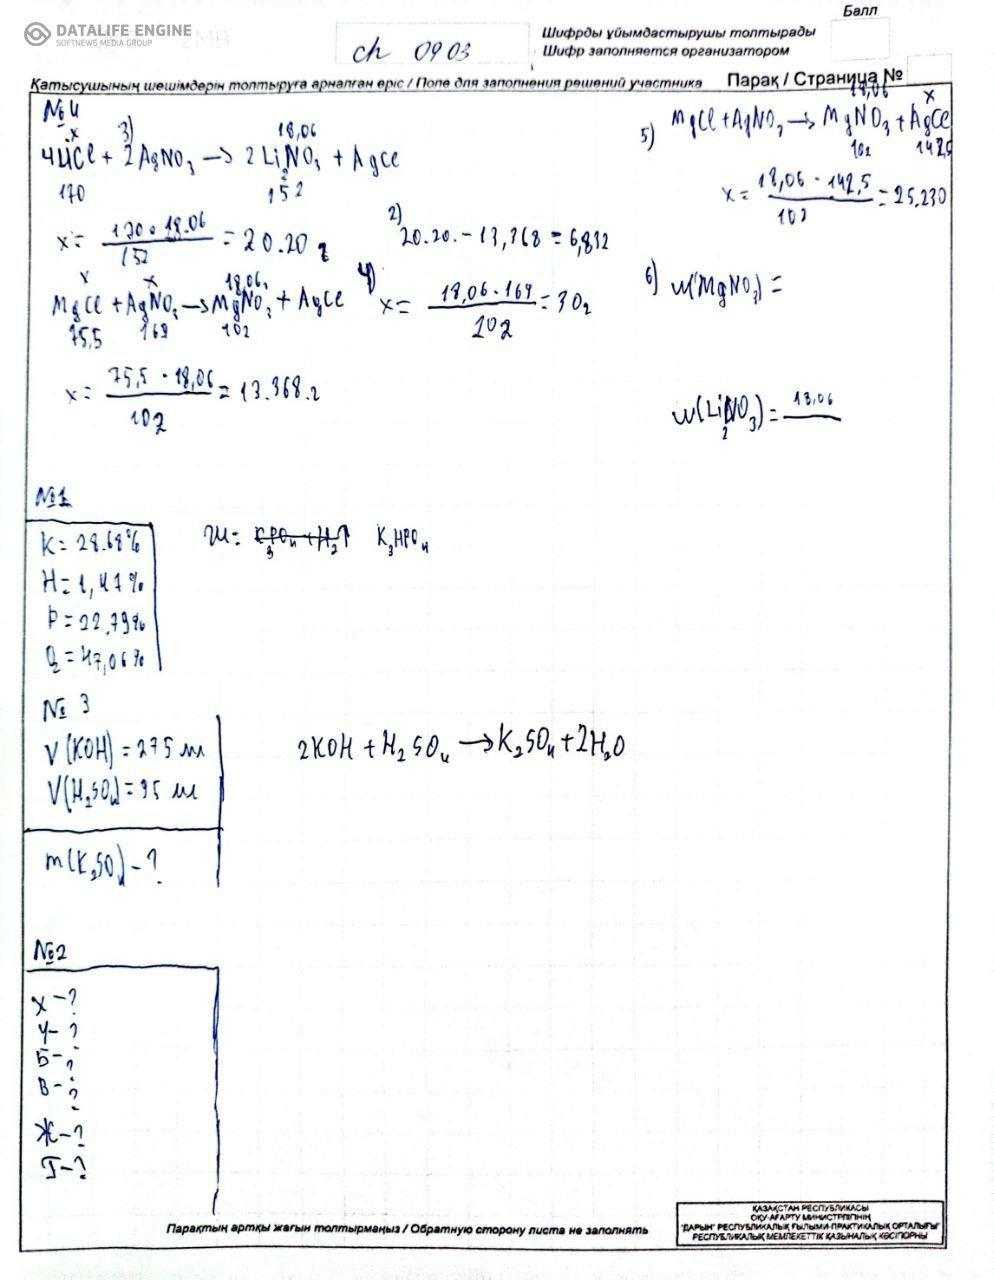 DATALIFE ENGINE
SOFTNEWS MEDIA GROUP
ch 0903
Балл
Шифрды ұйымдастырушы толтырады
Шифр заполняется организатором
Қатысушының шешімдерін толтыруға арналған еріс / Поле для заполнения решений участника
Парақ / Страница №
№4
x 3) 18,06
4LiCl + 2AgNO3 → 2Li2NO3 + AgCl
170 152
x = 170 · 18.06 / 152 = 20.20 г
2)
20.20. - 13,368 = 6,832
x x 18,06.
MgCl + AgNO3 → MgNO3 + AgCl
75,5 169 102
x = 75,5 · 18,06 / 102 = 13.368.г
4)
x = 18,06 · 169 / 102 = 30г
18,06 x
5) MgCl + AgNO3 → MgNO3 + AgCl
102 142,5
x = 18,06 · 142,5 / 102 = 25,230
6) w(MgNO3) =
w(Li2NO3) = 18,06
№1
K = 28.68%
H = 1,47%
P = 22,79%
O2 = 47,06%
M: K3PO4 + H2↑ K3HPO4
№ 3
V(KOH) = 275 мл
V(H2SO4) = 95 мл
m(K2SO4) - ?
2KOH + H2SO4 → K2SO4 + 2H2O
№2
Х - ?
У - ?
Б - ?
В - ?
Ж - ?
Г - ?
Парақтың артқы жағын толтырмаңыз / Обратную сторону листа не заполнять
ҚАЗАҚСТАН РЕСПУБЛИКАСЫ
ОҚУ-АҒАРТУ МИНИСТРЛІГІНІҢ
"ДАРЫН" РЕСПУБЛИКАЛЫҚ ҒЫЛЫМИ-ПРАКТИКАЛЫҚ ОРТАЛЫҒЫ
РЕСПУБЛИКАЛЫҚ МЕМЛЕКЕТТІК ҚАЗЫНАЛЫҚ КӘСІПОРНЫ